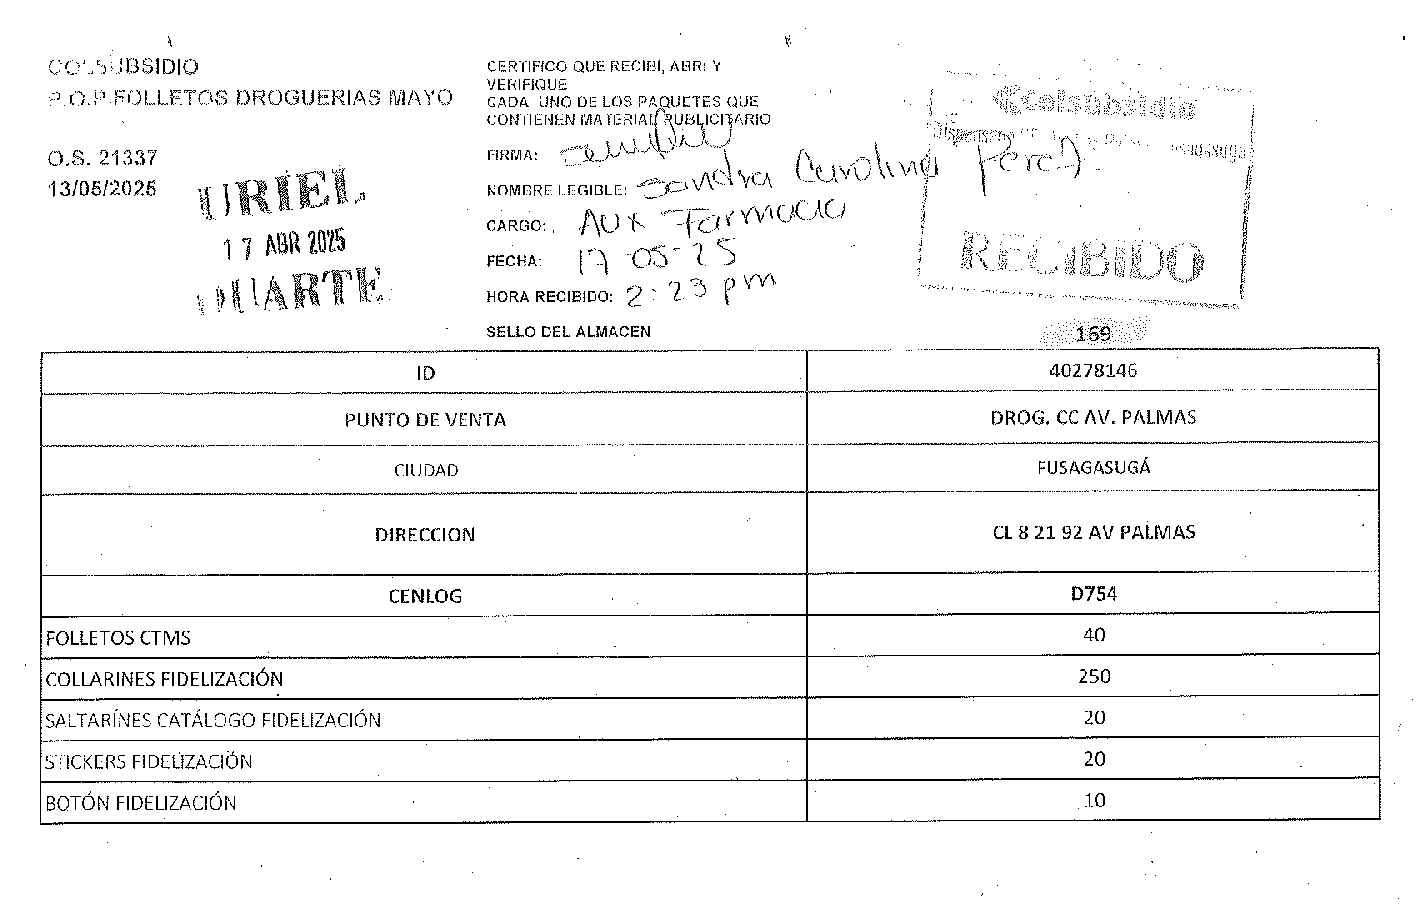 COLSUBSIDIO
P.O.P FOLLETOS DROGUERIAS MAYO
O.S. 21337
13/05/2025
URIEL
17 ABR 2025
DUARTE
CERTIFICO QUE RECIBI, ABRI Y
VERIFIQUE
CADA UNO DE LOS PAQUETES QUE
CONTIENEN MATERIAL PUBLICITARIO
FIRMA:
NOMBRE LEGIBLE: Sandra Carolina Perez A.
CARGO: Aux Farmacia
FECHA: 17-05-25
HORA RECIBIDO: 2:23 pm
SELLO DEL ALMACEN
Colsubsidio
RECIBIDO
169
ID 40278146
PUNTO DE VENTA DROG. CC AV. PALMAS
CIUDAD FUSAGASUGÁ
DIRECCION CL 8 21 92 AV PALMAS
CENLOG D754
FOLLETOS CTMS 40
COLLARINES FIDELIZACIÓN 250
SALTARÍNES CATÁLOGO FIDELIZACIÓN 20
STICKERS FIDELIZACIÓN 20
BOTÓN FIDELIZACIÓN 10